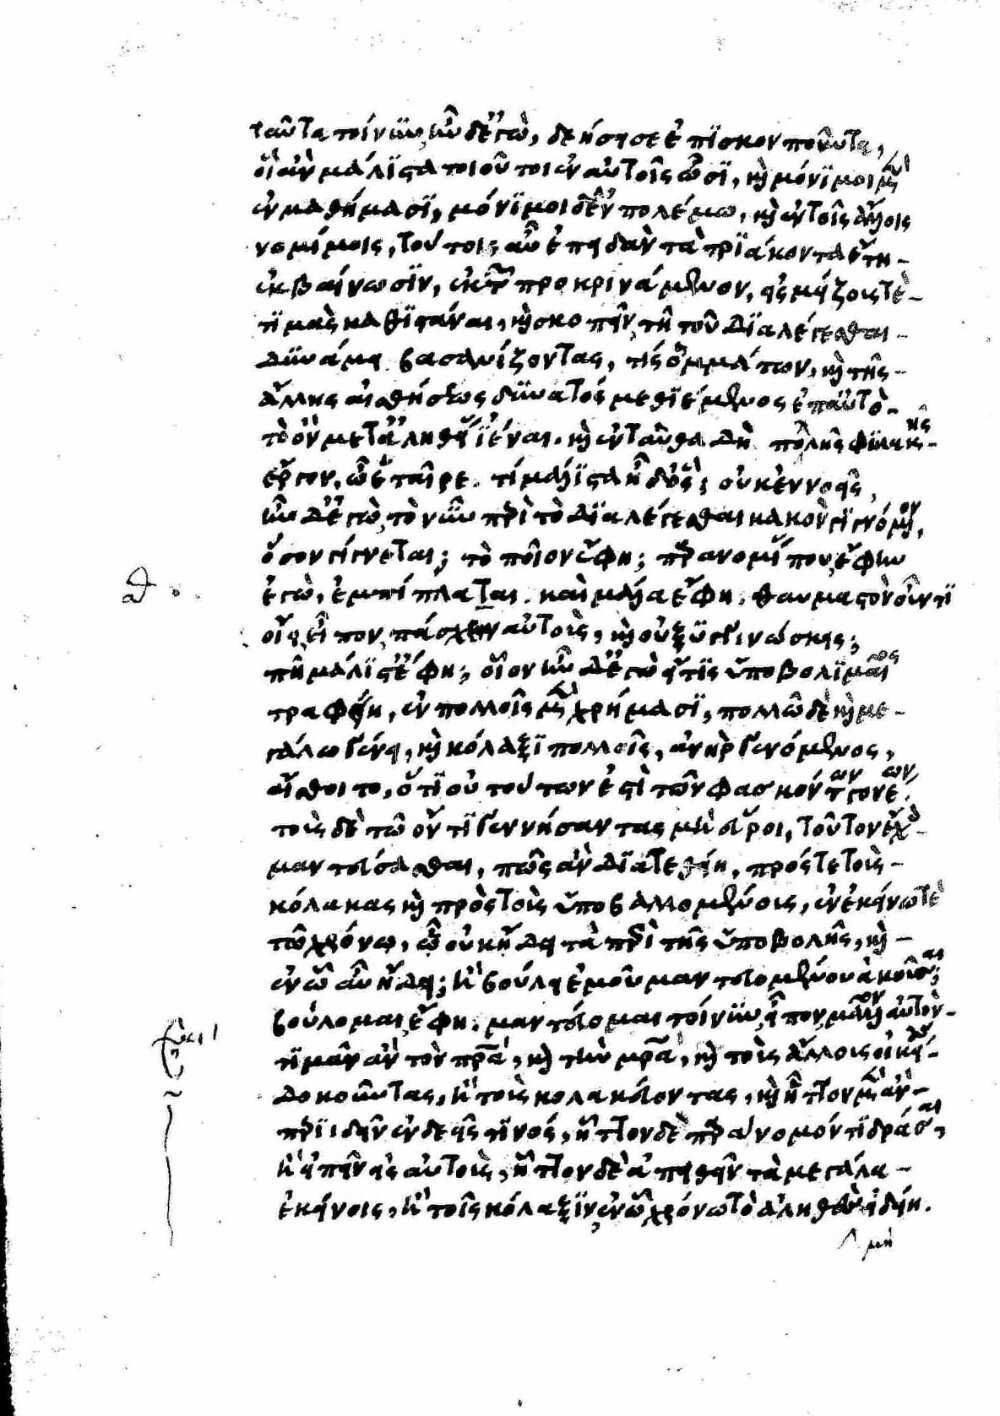 ταῦτα τοίνυν ἦν δ' ἐγὼ, δεήσει σε ἐπισκοποῦντα,
οἳ ἂν μάλιστα τοιοῦτοι ἐν αὐτοῖς ὦσι, καὶ μόνιμοι μὲν
ἐν μαθήμασι, μόνιμοι δ' ἐν πολέμω, καὶ ἐν τοῖς ἄλλοις
νομίμοις, τούτοις αὖ ἐπειδὰν τὰ τριάκοντα ἔτη
ἐκβαίνωσιν, ἐκ τῶν προκρίτων προκρινάμενον, εἰς μείζους τὲ
τιμὰς καθιστάναι, καὶ σκοπεῖν, τῆ τοῦ διαλέγεσθαι
δυνάμει βασανίζοντας, τίς ὀμμάτων, καὶ τῆς
ἄλλης αἰσθήσεως δυνατὸς μεθιέμενος ἐπ' αὐτὸ
τὸ ὂν μετ' ἀληθείας ἰέναι. καὶ ἐνταῦθα δὴ πολλῆς φυλακῆς
ἔργον, ὦ ἑταῖρε. τί μάλιστα ἦ δ' ὅς; οὐκ ἐννοεῖς,
ἦν δ' ἐγὼ, τὸ νῦν περὶ τὸ διαλέγεσθαι κακὸν γιγνόμενον,
ὅσον γίγνεται; τὸ ποῖον ἔφη; παρανομίας που, ἔφην
ἐγὼ, ἐμπίπλαται. καὶ μάλα ἔφη. θαυμαστὸν οὖν τι
οἴει εἶπον, πάσχειν αὐτοὺς, καὶ οὐ ξυγγινώσκεις;
πῆ μάλιστ' ἔφη; οἷον ἦν δ' ἐγὼ εἴ τις ὑποβολιμαῖος
τραφείη, ἐν πολλοῖς μὲν χρήμασι, πολλῶ δὲ καὶ με
γάλω γένει, καὶ κόλαξι πολλοῖς, ἀνὴρ γενόμενος,
αἴσθοιτο, ὅτι οὐ τούτων ἐστὶ τῶν φασκόντων γονέων,
τοὺς δὲ τῶ ὄντι γεννήσαντας μὴ εὕροι, τοῦτον ἔχεις
μαντεύσασθαι, πῶς ἂν διατεθείη, πρός τε τοὺς
κόλακας καὶ πρὸς τοὺς ὑποβαλλομένους, ἐν ἐκείνω τὲ
τῶ χρόνω, ὧ οὐκ ἤδει τὰ περὶ τῆς ὑποβολῆς, καὶ
ἐν ὧ αὖ ἤδει; ἢ βούλει ἐμοῦ μαντευομένου ἀκοῦσαι;
βούλομαι, ἔφη. μαντεύομαι τοίνυν, εἶπον, μᾶλλον αὐτὸν
τιμᾶν ἂν τὸν πρα, καὶ τὴν μρα, καὶ τοὺς ἄλλους οἰκείους
δοκοῦντας, ἢ τοὺς κολακεύοντας, καὶ ἧττον μὲν ἂν
περιιδεῖν ἐνδεεῖς τινός, ἧττον δὲ παράνομόν τι δράσαι,
ἢ εἰπεῖν εἰς αὐτοὺς, ἧττον δὲ ἀπειθεῖν τὰ μεγάλα
ἐκείνοις, ἢ τοῖς κόλαξιν, ἐν ὧ χρόνω τὸ ἀληθὲς εἰδείη.
μὴ